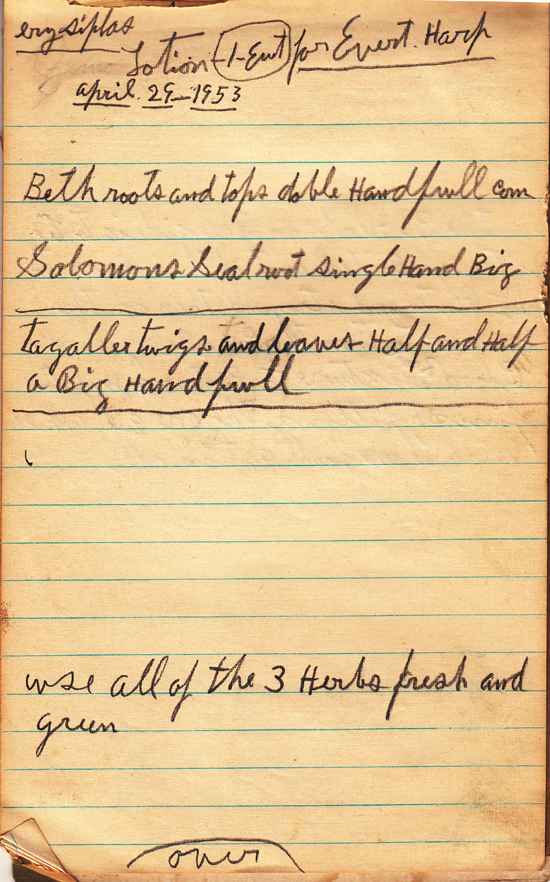 erysiplas
Lotion - 1-Ext for Evert. Harp
april. 29-1953
Beth roots and tops doble Handfwll com
Solomons Seal root single Hand Big
tagaller twigs and leaves Half and Half
a Big Handfwll
wse all of the 3 Herbs fresh and
green
over